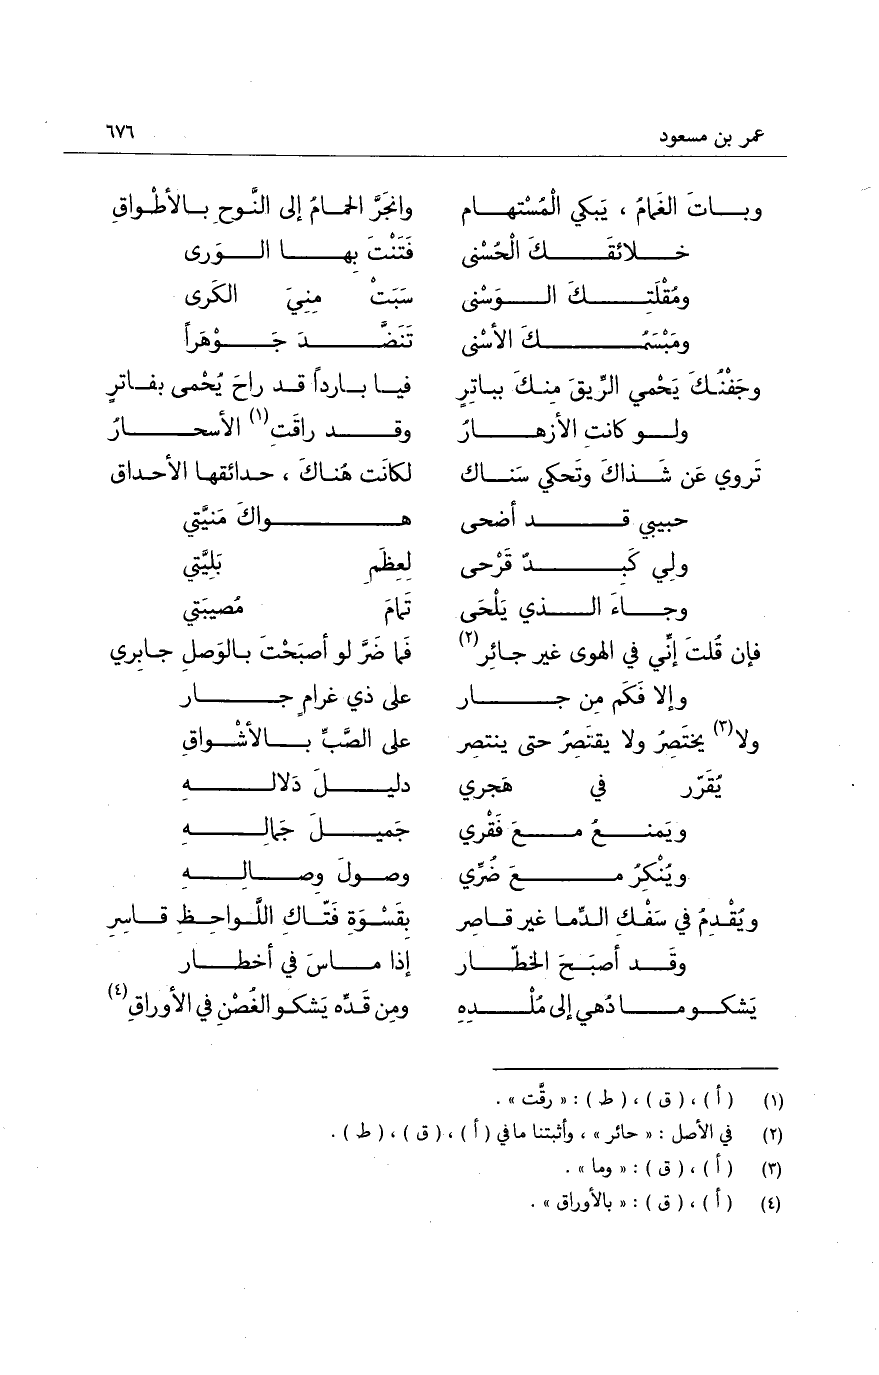 عمر بن مسعود ٦٧٦
وبات الغَمامُ ، يَبكي الْمُسْتهام وانجَرَّ الحمامُ إلى النَّوحِ بالأطْواقِ
خلائقَكَ الْحُسْنى فَتَنْتَ بها الوَرى
ومُقْلَتِكَ الوَسْنى سَبَتْ مِنِيَ الكَرى
ومَبْسَمُكَ الأسْنى تَنَضَّدَ جَوْهَراً
وجَفْنُكَ يَحْمي الرِّيقَ مِنكَ بباتِرٍ فيا بارداً قد راحَ يُحْمى بفاترٍ
ولو كانت الأزهارُ وقد راقَت(١) الأسحارُ
تَروي عَن شَذاكَ وتَحكي سَناك لكانَت هُناكَ ، حدائقها الأحداق
حبيبي قد أضحى هواكَ مَنيَّتي
ولي كَبدٌ قَرْحى لِعِظَمِ بَلِيَّتي
وجاءَ الذي يَلْحَى تَمامَ مُصيبَتي
فإن قُلتَ إنّي في الهوى غير جائرِ(٢) فَما ضَرَّ لو أصبَحْتَ بالوَصلِ جابري
وإلا فَكَم مِن جار على ذي غرامٍ جارِ
ولا(٣) يختَصِرُ ولا يقتَصِرُ حتى ينتصِر على الصَّبِّ بالأشْواقِ
يُقَرّر في هَجري دليلَ دَلالهِ
ويَمنعُ معَ فَقْري جَميلَ جَمالِهِ
ويُنْكِرُ معَ ضُرِّي وصولَ وِصالِهِ
ويُقْدِمُ في سَفْك الدِّما غير قاصرِ بقَسْوَةِ فَتّاكِ اللَّواحِظِ قاسرِ
وقَد أصبَحَ الخطّار إذا ماسَ في أخطارِ
يَشكو ما دُهي إلى مُلْدِهِ ومِن قَدِّه يَشكو الغُصْن في الأوراقِ(٤)
(١) ( أ ) ، ( ق ) ، ( ط ) : « رقَّت » .
(٢) في الأصل : « حائر » ، وأثبتنا ما في ( أ ) ، ( ق ) ، ( ط ) .
(٣) ( أ ) ، ( ق ) : « وما » .
(٤) ( أ ) ، ( ق ) : « بالأوراق » .